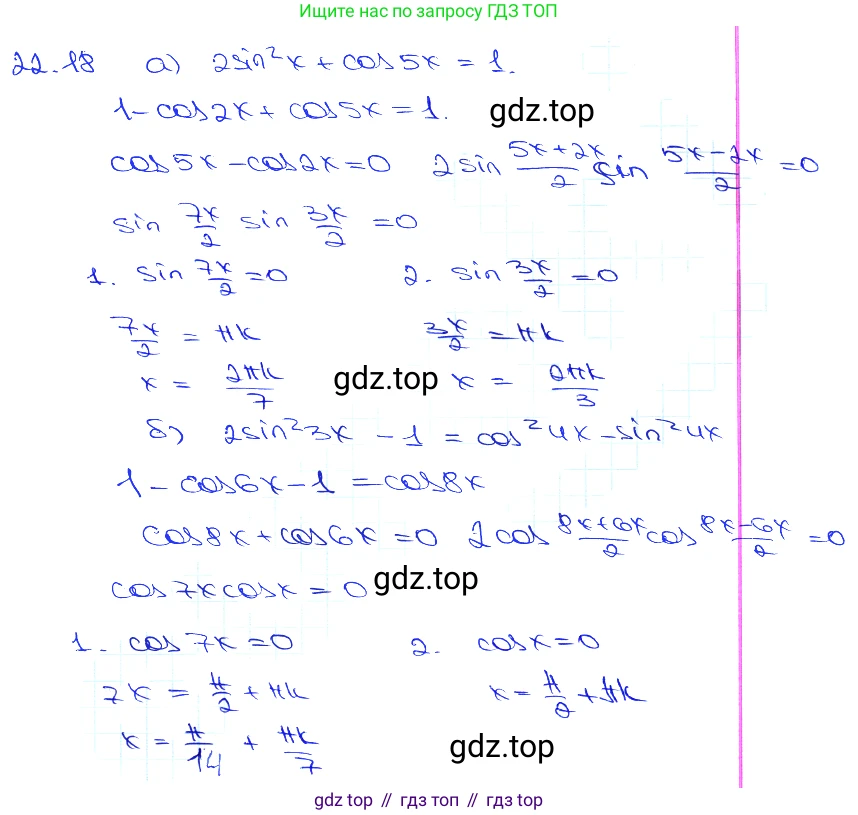 Ищите нас по запросу ГДЗ ТОП
22.18 а) 2sin²x + cos 5x = 1.
1 - cos2x + cos5x = 1. gdz.top
cos5x - cos2x = 0 2 sin (5x+2x)/2 sin (5x-2x)/2 = 0
sin 7x/2 sin 3x/2 = 0
1. sin 7x/2 = 0 2. sin 3x/2 = 0
7x/2 = πk 3x/2 = πk
x = 2πk/7 gdz.top x = 2πk/3
б) 2sin²3x - 1 = cos²4x - sin²4x
1 - cos6x - 1 = cos8x
cos8x + cos6x = 0 2cos (8x+6x)/2 cos (8x-6x)/2 = 0
cos7x cosx = 0 gdz.top
1. cos7x = 0 2. cosx = 0
7x = π/2 + πk x = π/2 + πk
x = π/14 + πk/7 gdz.top
gdz top // гдз топ // gdz top